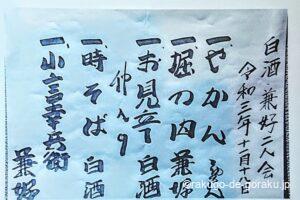 白酒・兼好二人会
令和三年十月十八日
一、やかん
一、堀の内 兼好
一、お見立て 白酒
仲入り
一、時そば 白酒
一、小言幸兵衛 兼好
©rakugo-de-goraku.jp/